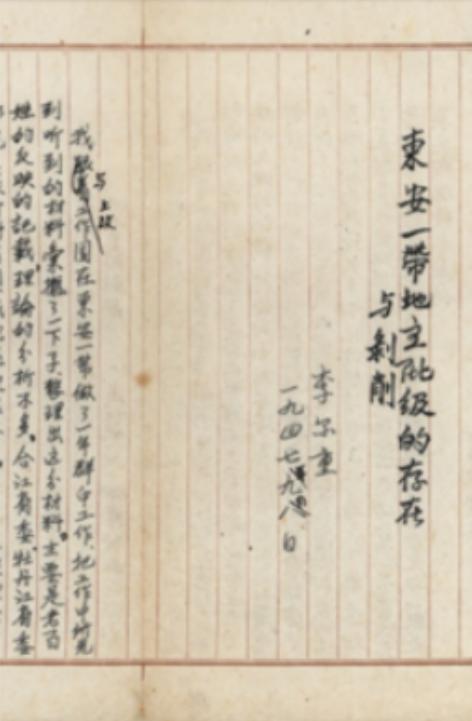 東安一帶地主阶级的存在
与剝削
李尔重
一九四七 九 日
与土改
我 工作团在東安一帶做了一年群众工作、把工作中所見
到听到的材料彙攏了一下子、整理出这分材料。主要是老百
姓的反映的記載、理論的分析不多、合江省委、牡丹江省委